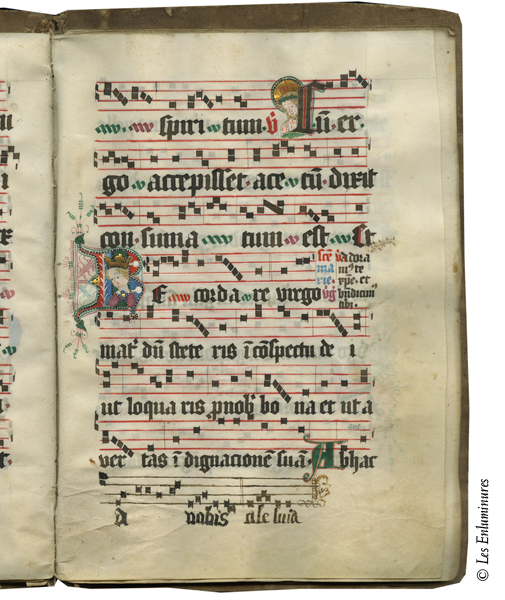 spiri tum V̄ Cū er
go accepisset acetū dixit
con suma tum est Et
Re corda re virgo
mat' dū stete ris ī cōspectu de i
ut loqua ris ꝓ nob bo na et ut a
ver tas ī dignacionē suā Ab hac
A nobis alle luia
© Les Enluminures